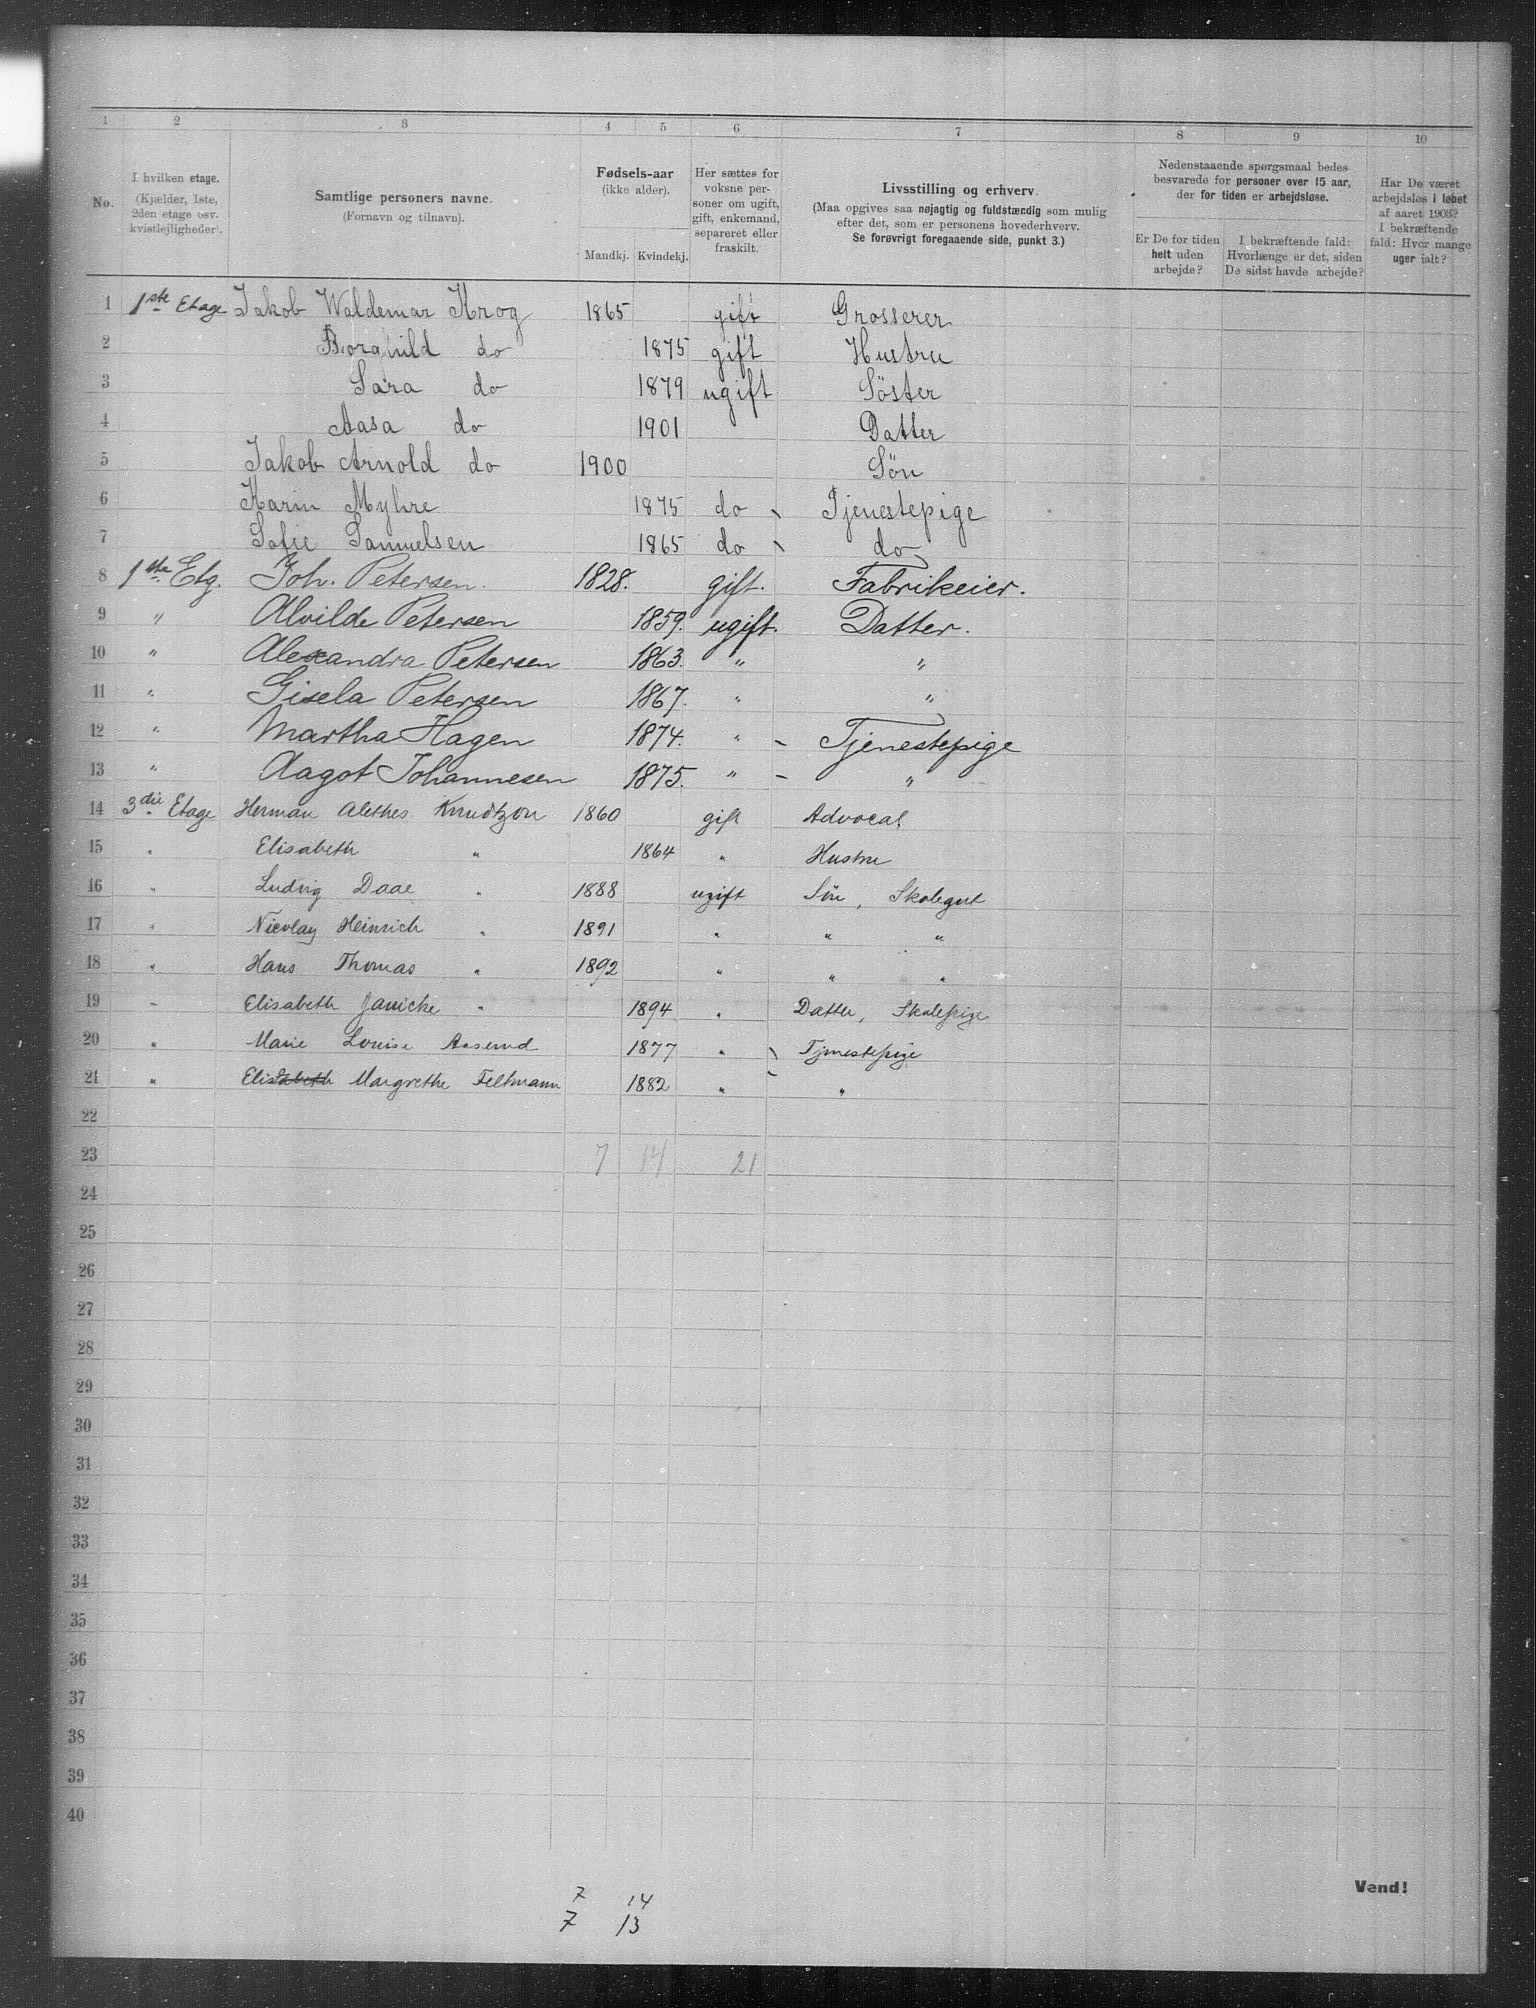 1 2 3 4 5 6 7 8 9 10
No.
I hvilken etage.
(Kjælder, 1ste,
2den etage osv.
kvistlejligheder).
Samtlige personers navne.
(Fornavn og tilnavn).
Fødsels-aar
(ikke alder).
Mandkj. Kvindekj.
Her sættes for
voksne per-
soner om ugift,
gift, enkemand,
separeret eller
fraskilt.
Livsstilling og erhverv.
(Maa opgives saa nøjagtig og fuldstændig som mulig
efter det, som er personens hovederhverv.
Se forøvrigt foregaaende side, punkt 3.)
Nedenstaaende spørgsmaal bedes
besvarede for personer over 15 aar,
der for tiden er arbejdsløse.
Er De for tiden
helt uden
arbejde?
I bekræftende fald:
Hvorlænge er det, siden
De sidst havde arbejde?
Har De været
arbejdsløs i løbet
af aaret 1903?
I bekræftende
fald: Hvor mange
uger ialt?
1 1ste Etage Jakob Waldemar Krog 1865 gift Grosserer
2 Borghild do 1875 gift Hustru
3 Sara do 1879 ugift Söster
4 Aasa do 1901 Datter
5 Jakob Arnold do 1900 Sön
6 Karin Myhre 1875 do \ Tjenestepige
7 Sofie Samuelsen 1865 do \ do
8 1ste Etg. Joh. Petersen. 1828. gift. Fabrikeier.
9 " Alvilde Petersen 1859. ugift. Datter.
10 " Alexandra Petersen 1863. " "
11 " Gisela Petersen 1867. " "
12 " Martha Hagen 1874. " – Tjenestepige
13 " Aagot Johannesen 1875. " – "
14 3die Etage Herman Alethes Knudtzon 1860 gift Advocat
15 " Elisabeth " 1864 " Hustru
16 " Ludvig Daae " 1888 ugift Sön, Skolegut
17 " Nicolay Heinrich " 1891 " " "
18 " Hans Thomas " 1892 " " "
19 " Elisabeth Janicke " 1894 " Datter, Skolepige
20 " Marie Louise Aaserud 1877 " \ Tjenestepige
21 " Elisabeth Margrethe Feltmann 1882 " \ "
22
23 7 14 21
24
25
26
27
28
29
30
31
32
33
34
35
36
37
38
39
40
Vend!
7 14
7 13